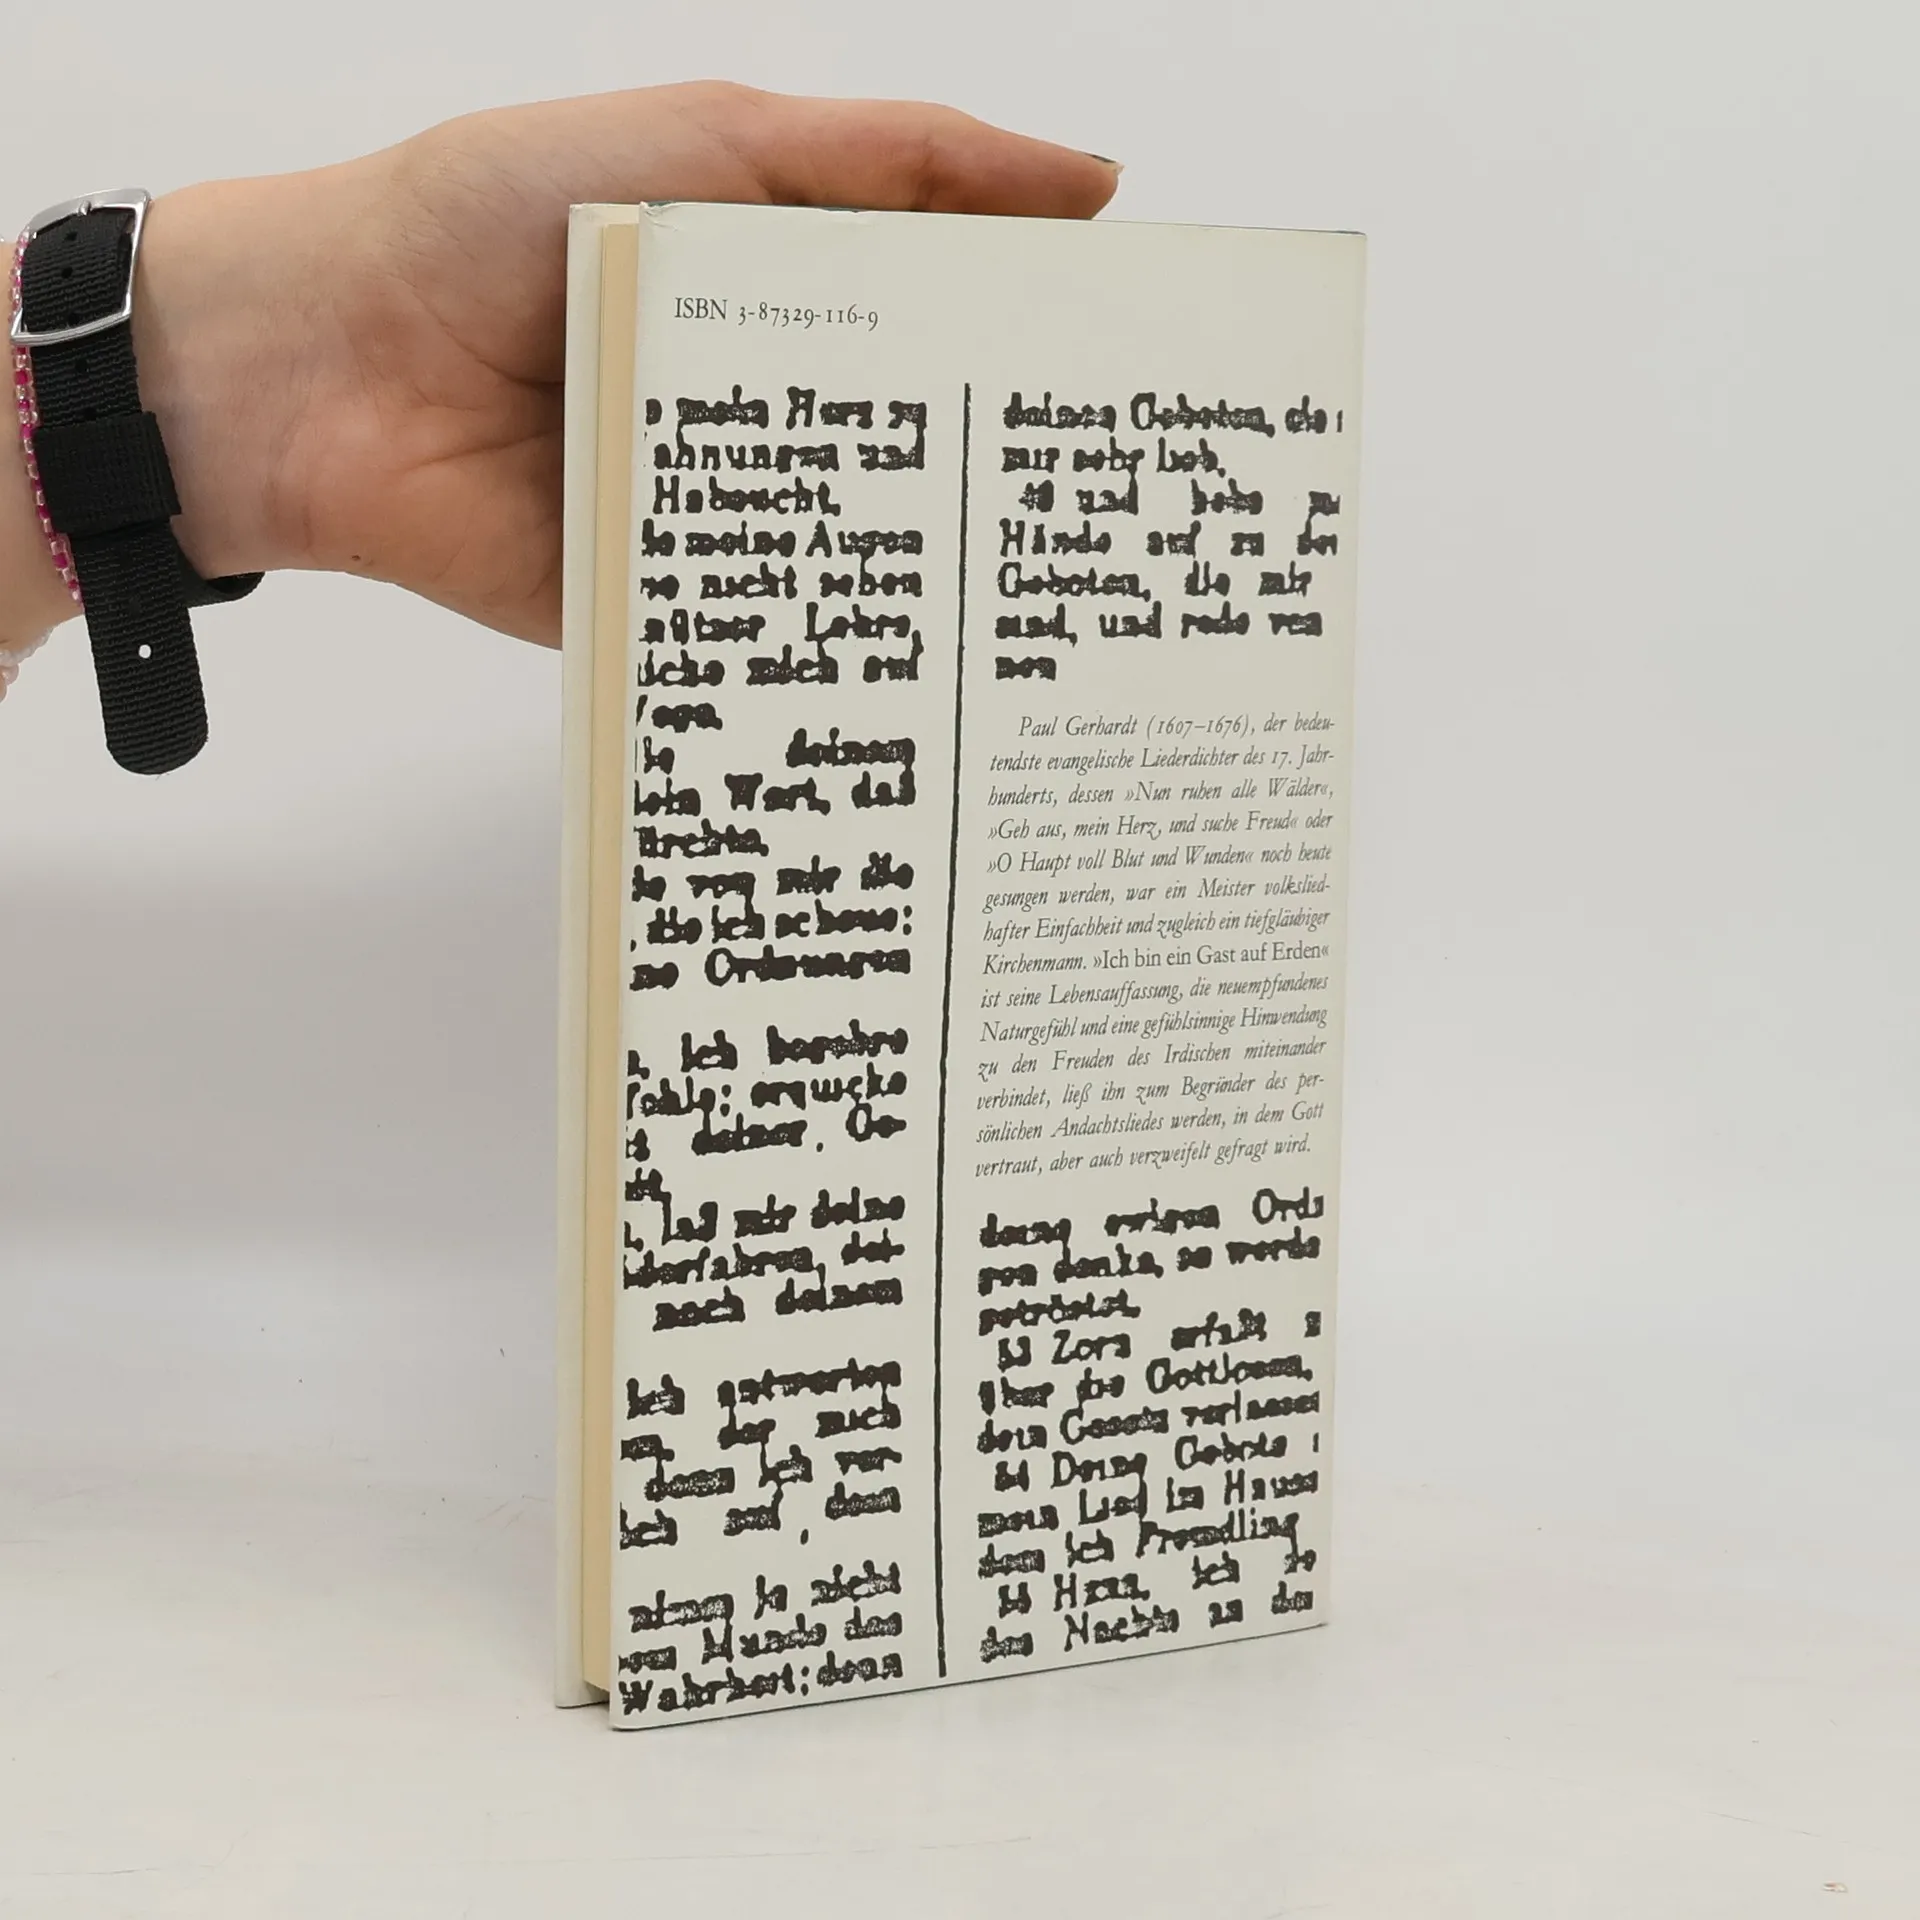 ISBN 3-87329-116-9
mein Herz zu
ahnungen und
Habsucht,
meine Augen
nicht sehen
Lehre,
mich auf
deinem
Wort, daß
von mir die
die ich scheue:
Ordnungen
ich begehre
erquicke
deiner Ge-
laß mir deine
nach deinem
ich antworten
der mich
denn ich ver-
auf dein
nimm ja nicht
Munde das
Wahrheit; denn
deinen Geboten, die
mir sehr lieb,
48 und hebe
Hände auf zu den
Geboten, die mir
sind, und rede von
nen
Paul Gerhardt (1607–1676), der bedeu-
tendste evangelische Liederdichter des 17. Jahr-
hunderts, dessen »Nun ruhen alle Wälder«,
»Geh aus, mein Herz, und suche Freud« oder
»O Haupt voll Blut und Wunden« noch heute
gesungen werden, war ein Meister volkslied-
hafter Einfachheit und zugleich ein tiefgläubiger
Kirchenmann. »Ich bin ein Gast auf Erden«
ist seine Lebensauffassung, die neuempfundenes
Naturgefühl und eine gefühlsinnige Hinwendung
zu den Freuden des Irdischen miteinander
verbindet, ließ ihn zum Begründer des per-
sönlichen Andachtsliedes werden, in dem Gott
vertraut, aber auch verzweifelt gefragt wird.
deine ewigen Ord
gen denke, so werde
getröstet.
53 Zorn erfaßt
über die Gottlosen,
dein Gesetz verlassen
54 Deine Gebote
mein Lied im Hause
dem ich Fremdling
55 Herr, ich
des Nachts an